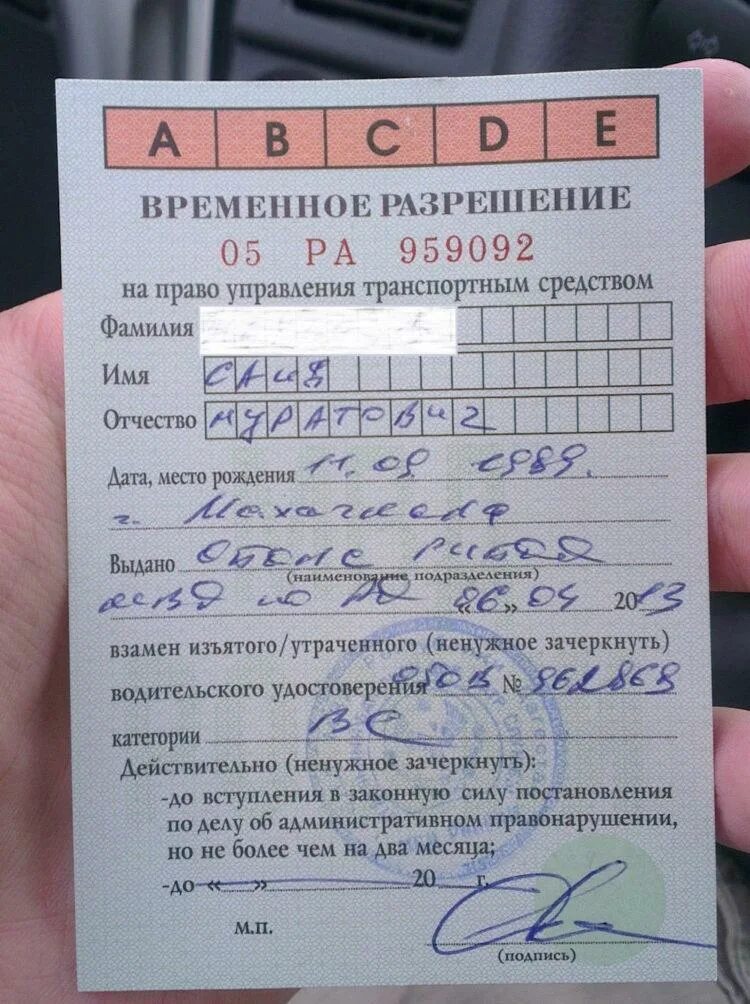 A B C D E
ВРЕМЕННОЕ РАЗРЕШЕНИЕ
05 РА 959092
на право управления транспортным средством
Фамилия
Имя САИД
Отчество МУРАТОВИЧ
Дата, место рождения 11.09 1989.
г. Махачкала
Выдано
(наименование подразделения)
МВД по РД «26» 04 2013
взамен изъятого/утраченного (ненужное зачеркнуть)
водительского удостоверения 050В №
категории ВС
Действительно (ненужное зачеркнуть):
-до вступления в законную силу постановления
по делу об административном правонарушении,
но не более чем на два месяца;
-до « » 20 г.
М.П.
(подпись)